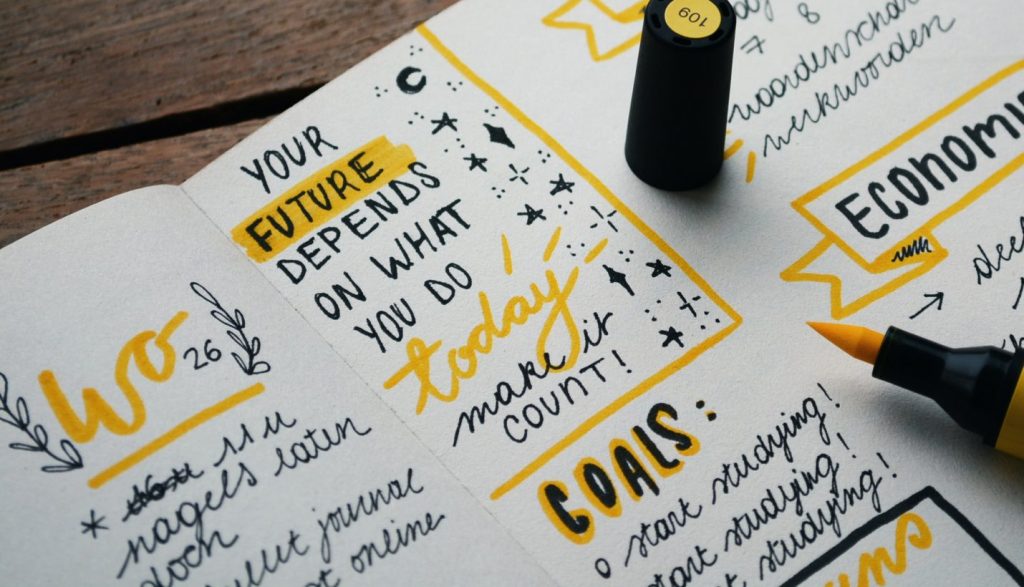 Wo 26
* 11u
nagels laten
doch
bullet journal
online
YOUR
FUTURE
DEPENDS
ON WHAT
YOU DO
today
make it
COUNT!
GOALS:
o start studying!
start studying!
studying!
109
7 8
woordenschat
werkwoorden
ECONOMI
→